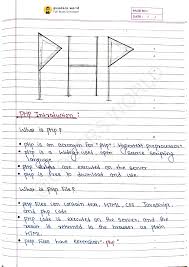 PHP
PHP Introduction :
What is php?
php is an acronym for "php: Hypertext preprocessor"
php is a widely used open source scripting
language
php scripts are executed on the server
php is free to download and use.
What is php File?
php files can contain text, HTML, CSS, JavaScript,
and php code
php code is executed on the server, and the
result is returned to the browser as plain
HTML.
php files have extension ".php"